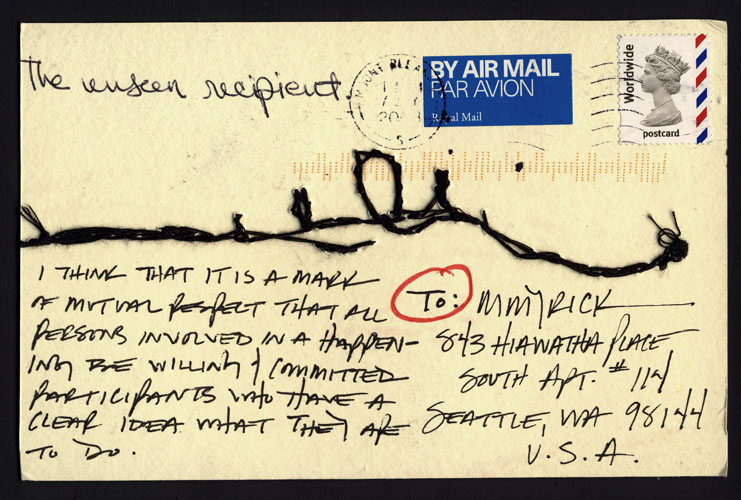 The unseen recipient.
MOUNT PLEA
2003
S
BY AIR MAIL
PAR AVION
Royal Mail
Worldwide
postcard
I THINK THAT IT IS A MARK
OF MUTUAL RESPECT THAT ALL
PERSONS INVOLVED IN A HAPPEN-
ING BE WILLING & COMMITTED
PARTICIPANTS WHO HAVE A
CLEAR IDEA WHAT THEY ARE
TO DO.
TO: MMYRICK
843 HIAWATHA PLACE
SOUTH APT. #114
SEATTLE, WA 98144
U.S.A.